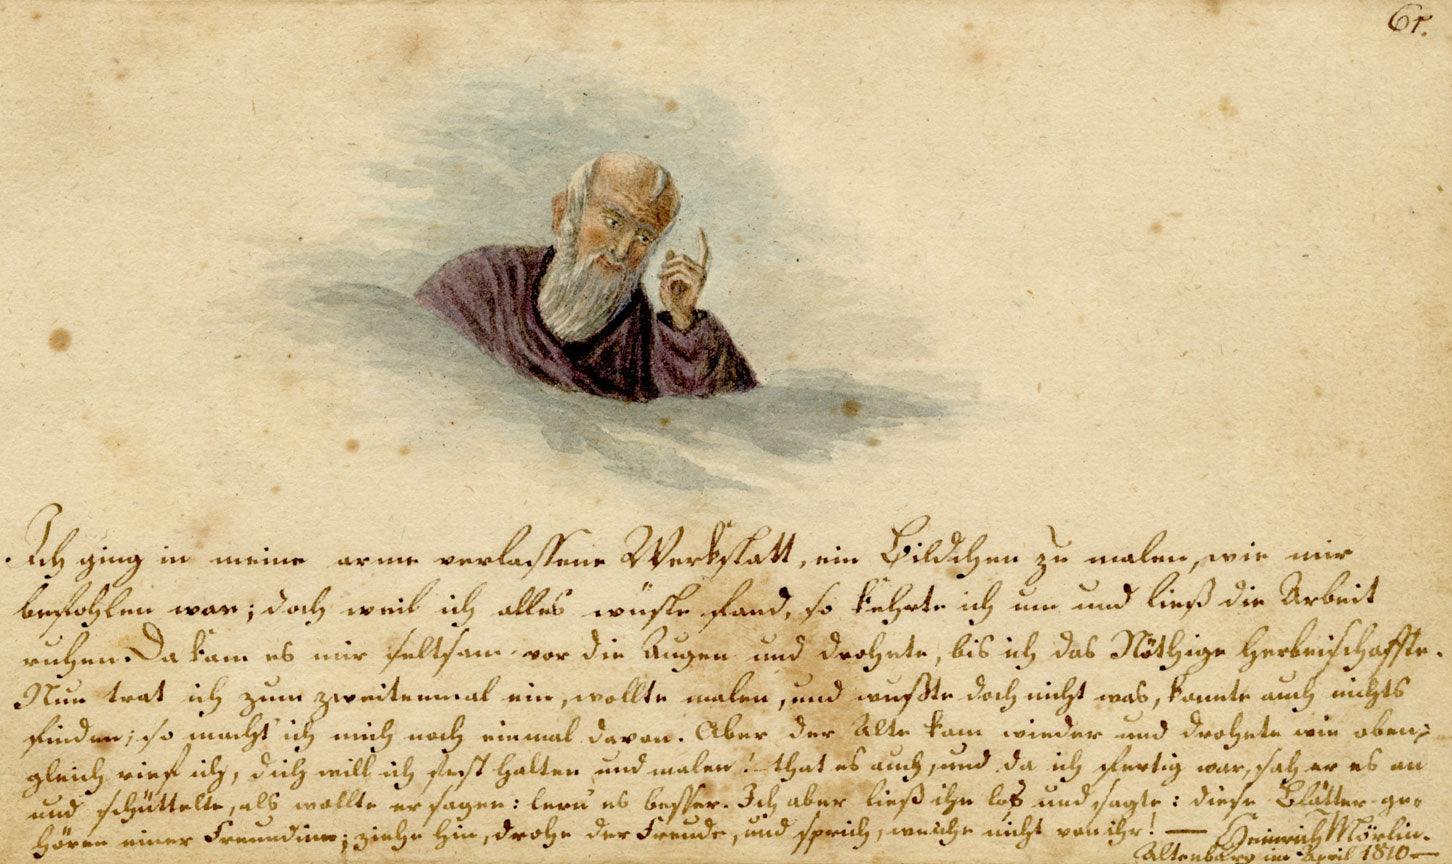 61.
Ich ging in meine arme verlassene Werkstatt, ein Bildchen zu malen, wie mir
befohlen war; doch weil ich alles wüste fand, so kehrte ich um und ließ die Arbeit
ruhen. Da kam es mir seltsam vor die Augen und drohete, bis ich das Nöthige herbeischaffte.
Nun trat ich zum zweitenmal ein, wollte malen, und wußte doch nicht was, konnte auch nichts
finden; so macht' ich mich noch einmal davon. Aber der Alte kam wieder und drohete wie oben;
gleich rief ich, dich will ich fest halten und malen! that es auch, und da ich fertig war, sah er es an
und schüttelte, als wollte er sagen: lern' es besser. Ich aber ließ ihn los und sagte: diese Blätter ge-
hören einer Freundinn; ziehe hin, drohe der Freude, und sprich, weiche nicht von ihr! — Heinrich Mörlin.
Altenburg im April 1810—